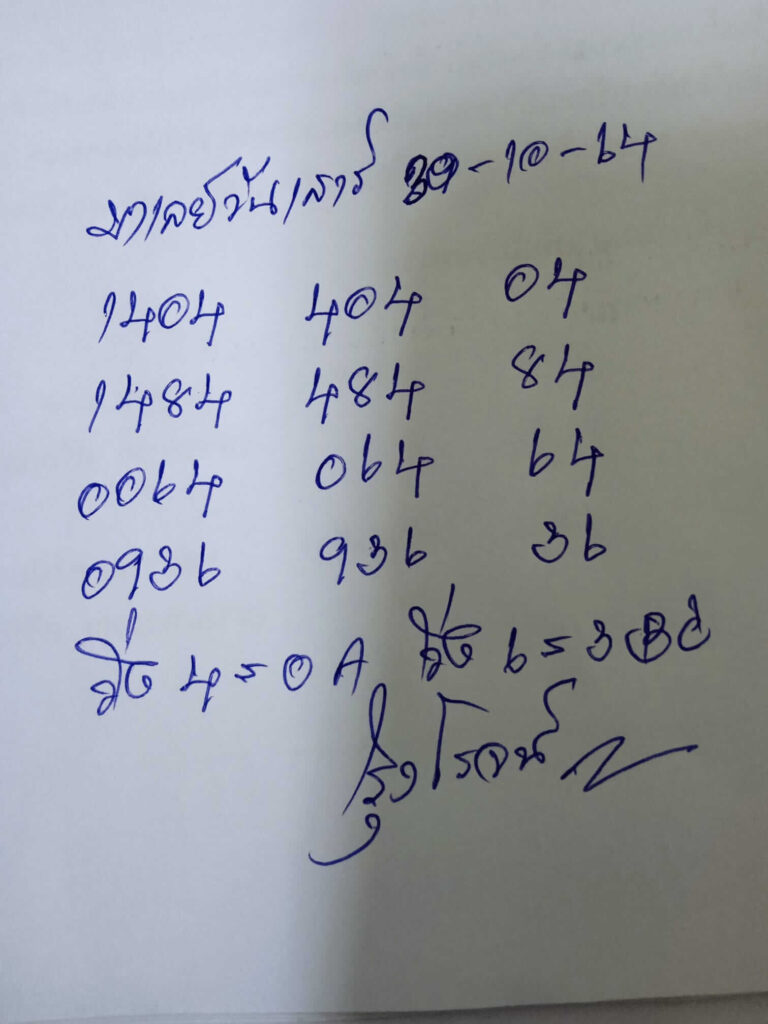 มาเลย์วันเสาร์ 30-10-64
1404 404 04
1484 484 84
0064 064 64
0936 936 36
วิ่ง 4=0 A วิ่ง 6=3 BC
รุ่งโรจน์